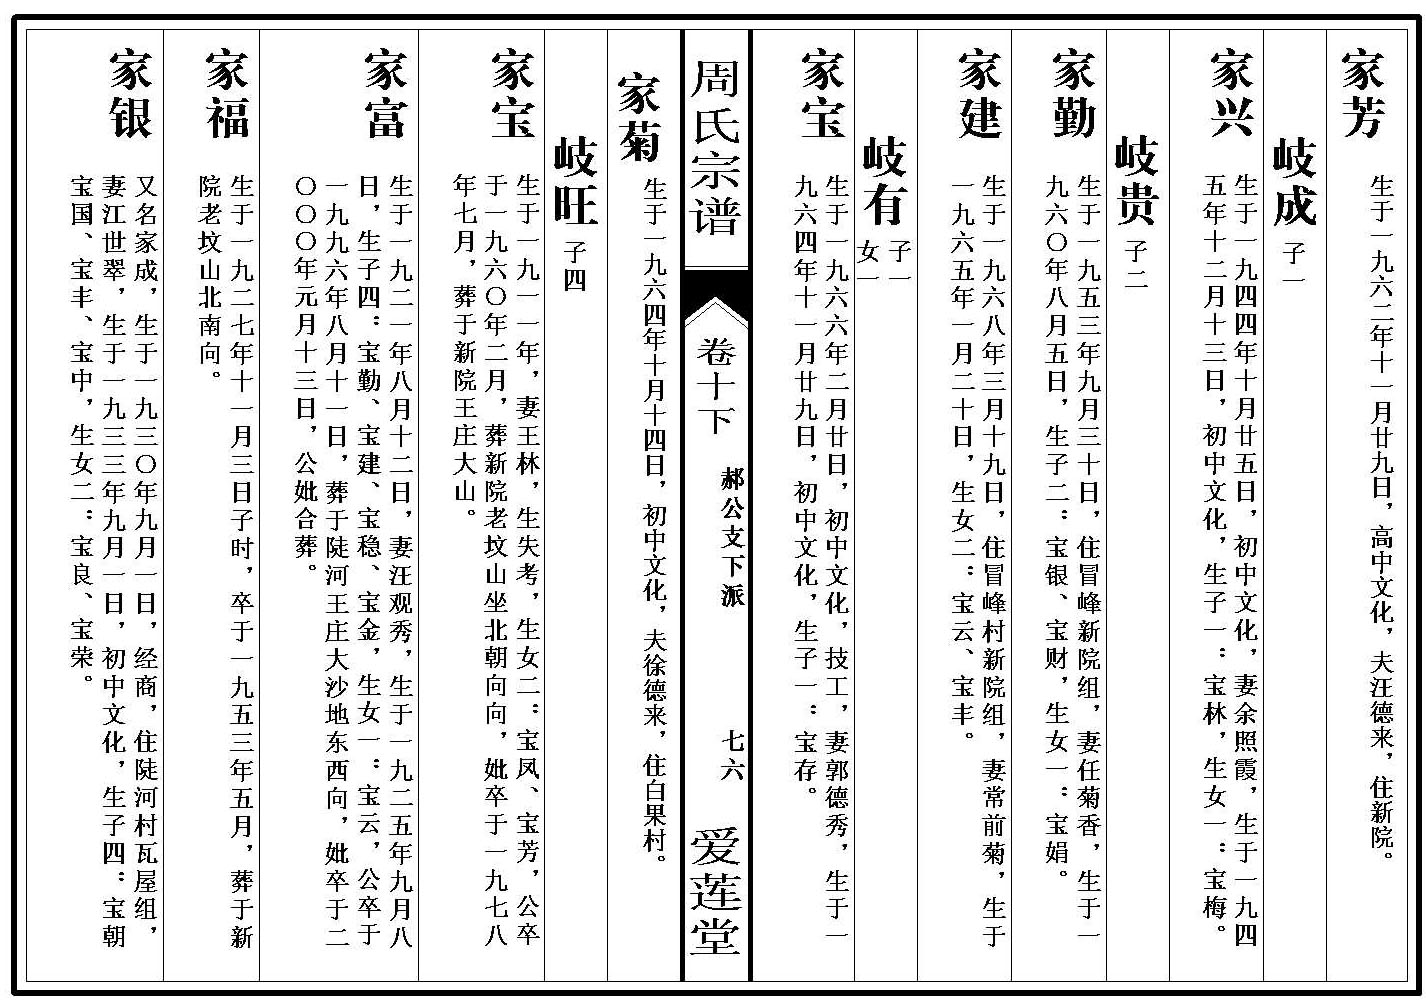 家芳
生于一九六二年十一月廿九日，高中文化，夫汪德来，住新院。
岐成
子一
家兴
生于一九四四年十月廿五日，初中文化，妻余照霞，生于一九四
五年十二月十三日，初中文化，生子一：宝林，生女一：宝梅。
岐贵
子二
家勤
生于一九五三年九月三十日，住冒峰新院组，妻任菊香，生于一
九六〇年八月五日，生子二：宝银、宝财，生女一：宝娟。
家建
生于一九六八年三月十九日，住冒峰村新院组，妻常前菊，生于
一九六五年一月二十日，生女二：宝云、宝丰。
岐有
子一
女一
家宝
生于一九六六年二月廿日，初中文化，技工，妻郭德秀，生于一
九六四年十一月廿九日，初中文化，生子一：宝存。
周氏宗谱
卷十下
郝公支下派
七六
爱莲堂
家菊
生于一九六四年十月十四日，初中文化，夫徐德来，住白果村。
岐旺
子四
家宝
生于一九一一年，妻王林，生失考，生女二：宝凤、宝芳，公卒
于一九六〇年二月，葬新院老坟山坐北朝向向，妣卒于一九七八
年七月，葬于新院王庄大山。
家富
生于一九二一年八月十二日，妻汪观秀，生于一九二五年九月八
日，生子四：宝勤、宝建、宝稳、宝金，生女一：宝云，公卒于
一九九六年八月十一日，葬于陡河王庄大沙地东西向，妣卒于二
〇〇〇年元月十三日，公妣合葬。
家福
生于一九二七年十一月三日子时，卒于一九五三年五月，葬于新
院老坟山北南向。
家银
又名家成，生于一九三〇年九月一日，经商，住陡河村瓦屋组，
妻江世翠，生于一九三三年九月一日，初中文化，生子四：宝朝
宝国、宝丰、宝中，生女二：宝良、宝荣。